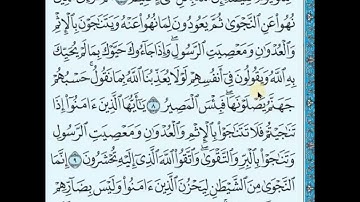 نُهُوا۟ عَنِ ٱلنَّجْوَىٰ ثُمَّ يَعُودُونَ لِمَا نُهُوا۟ عَنْهُ وَيَتَنَٰجَوْنَ بِٱلْإِثْمِ
وَٱلْعُدْوَٰنِ وَمَعْصِيَتِ ٱلرَّسُولِ وَإِذَا جَآءُوكَ حَيَّوْكَ بِمَا لَمْ يُحَيِّكَ
بِهِ ٱللَّهُ وَيَقُولُونَ فِىٓ أَنفُسِهِمْ لَوْلَا يُعَذِّبُنَا ٱللَّهُ بِمَا نَقُولُ ۚ حَسْبُهُمْ
جَهَنَّمُ يَصْلَوْنَهَا ۖ فَبِئْسَ ٱلْمَصِيرُ ٨ يَٰٓأَيُّهَا ٱلَّذِينَ ءَامَنُوٓا۟ إِذَا
تَنَٰجَيْتُمْ فَلَا تَتَنَٰجَوْا۟ بِٱلْإِثْمِ وَٱلْعُدْوَٰنِ وَمَعْصِيَتِ ٱلرَّسُولِ
وَتَنَٰجَوْا۟ بِٱلْبِرِّ وَٱلتَّقْوَىٰ ۖ وَٱتَّقُوا۟ ٱللَّهَ ٱلَّذِىٓ إِلَيْهِ تُحْشَرُونَ ٩ إِنَّمَا
ٱلنَّجْوَىٰ مِنَ ٱلشَّيْطَٰنِ لِيَحْزُنَ ٱلَّذِينَ ءَامَنُوا۟ وَلَيْسَ بِضَآرِّهِمْ